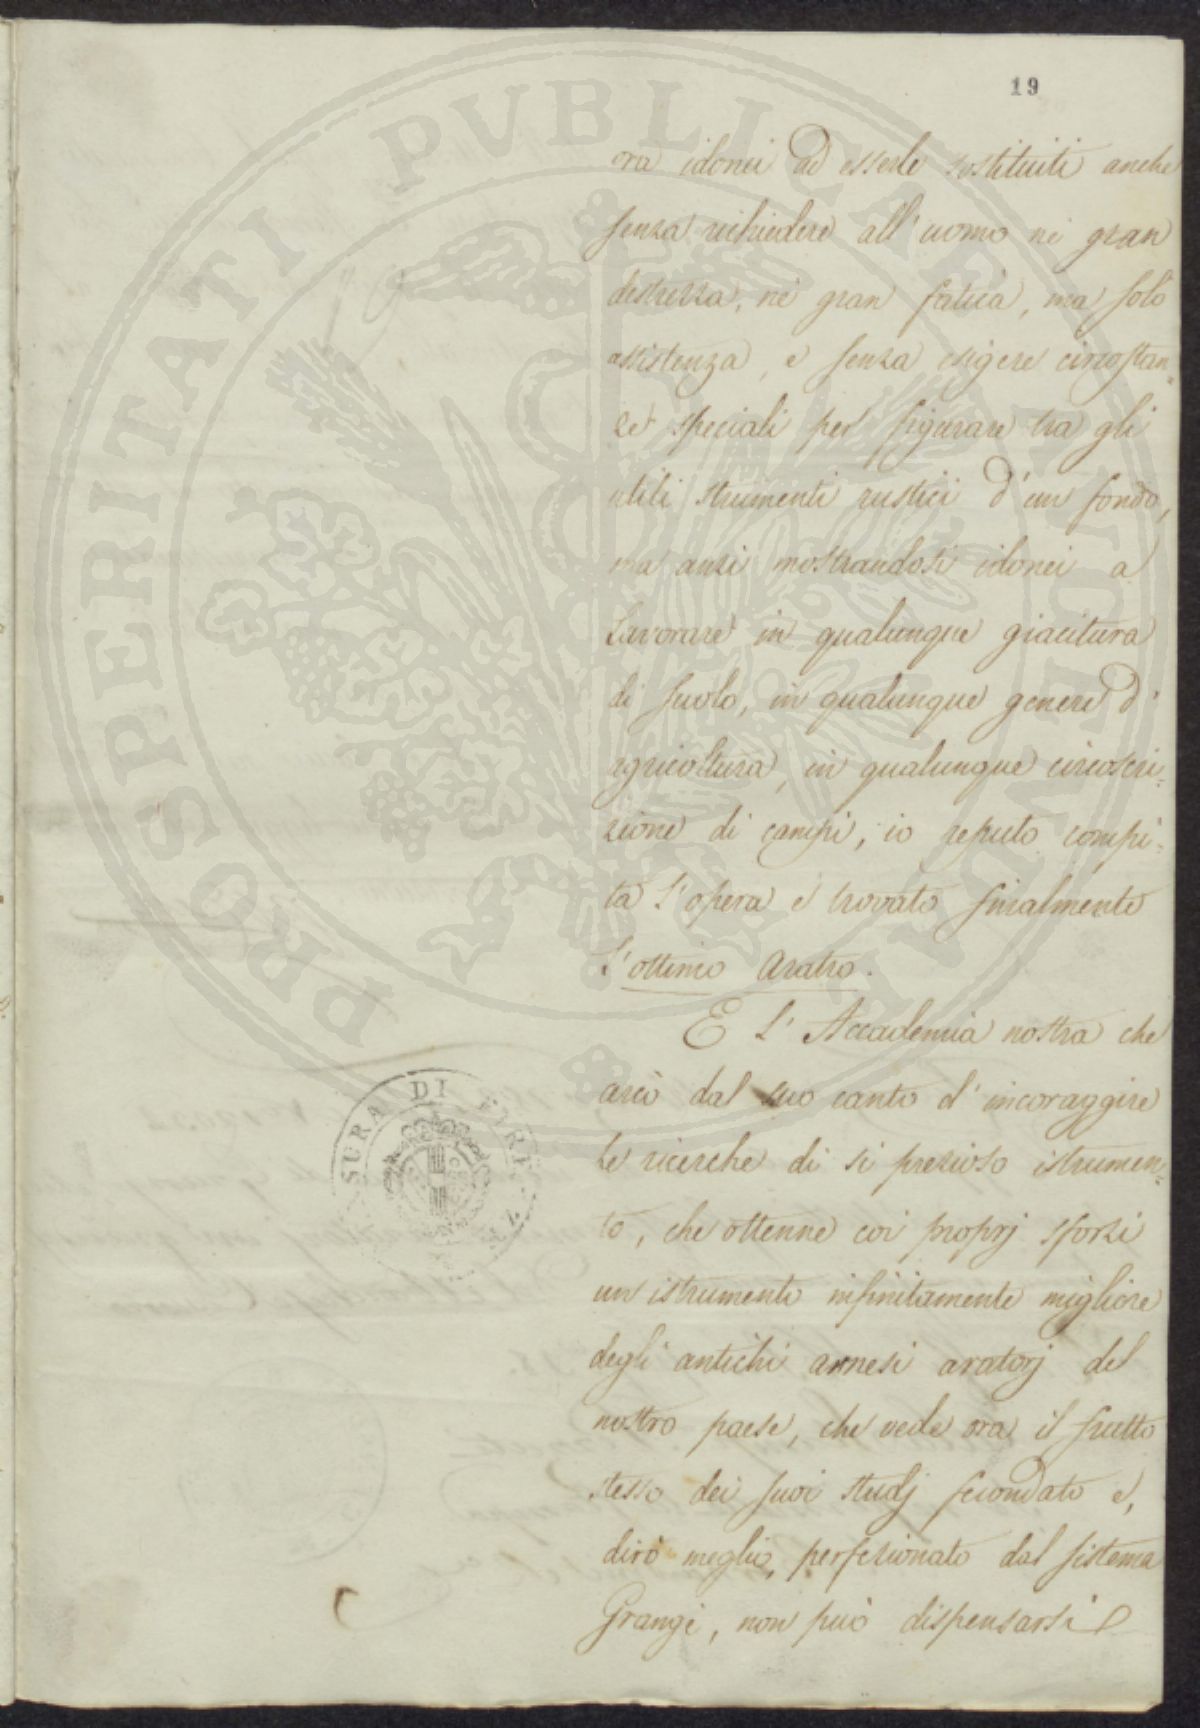 19
ora idonei ad esserle sostituiti anche
senza richiedere all'uomo nè gran
destrezza, nè gran fatica, ma solo
assistenza, e senza esigere circostan-
ze speciali per figurare tra gli
utili strumenti rustici d'un fondo,
ma anzi mostrandosi idonei a
lavorare in qualunque giacitura
di suolo, in qualunque genere d'
agricoltura, in qualunque circoscri-
zione di campi, io reputo compi-
ta l'opera e trovato finalmente
l'ottimo aratro.
E l'Accademia nostra che
cercò dal suo canto d'incoraggire
le ricerche di sì prezioso istrumen-
to, che ottenne coi proprj sforzi
un istrumento infinitamente migliore
degli antichi arnesi aratorj del
nostro paese, che vede ora il frutto
stesso dei suoi studj fecondato e,
dirò meglio, perfezionato dal sistema
Grangè, non può dispensarsi
PROSPERITATI PVBLICAE AVGENDAE
SURA DI